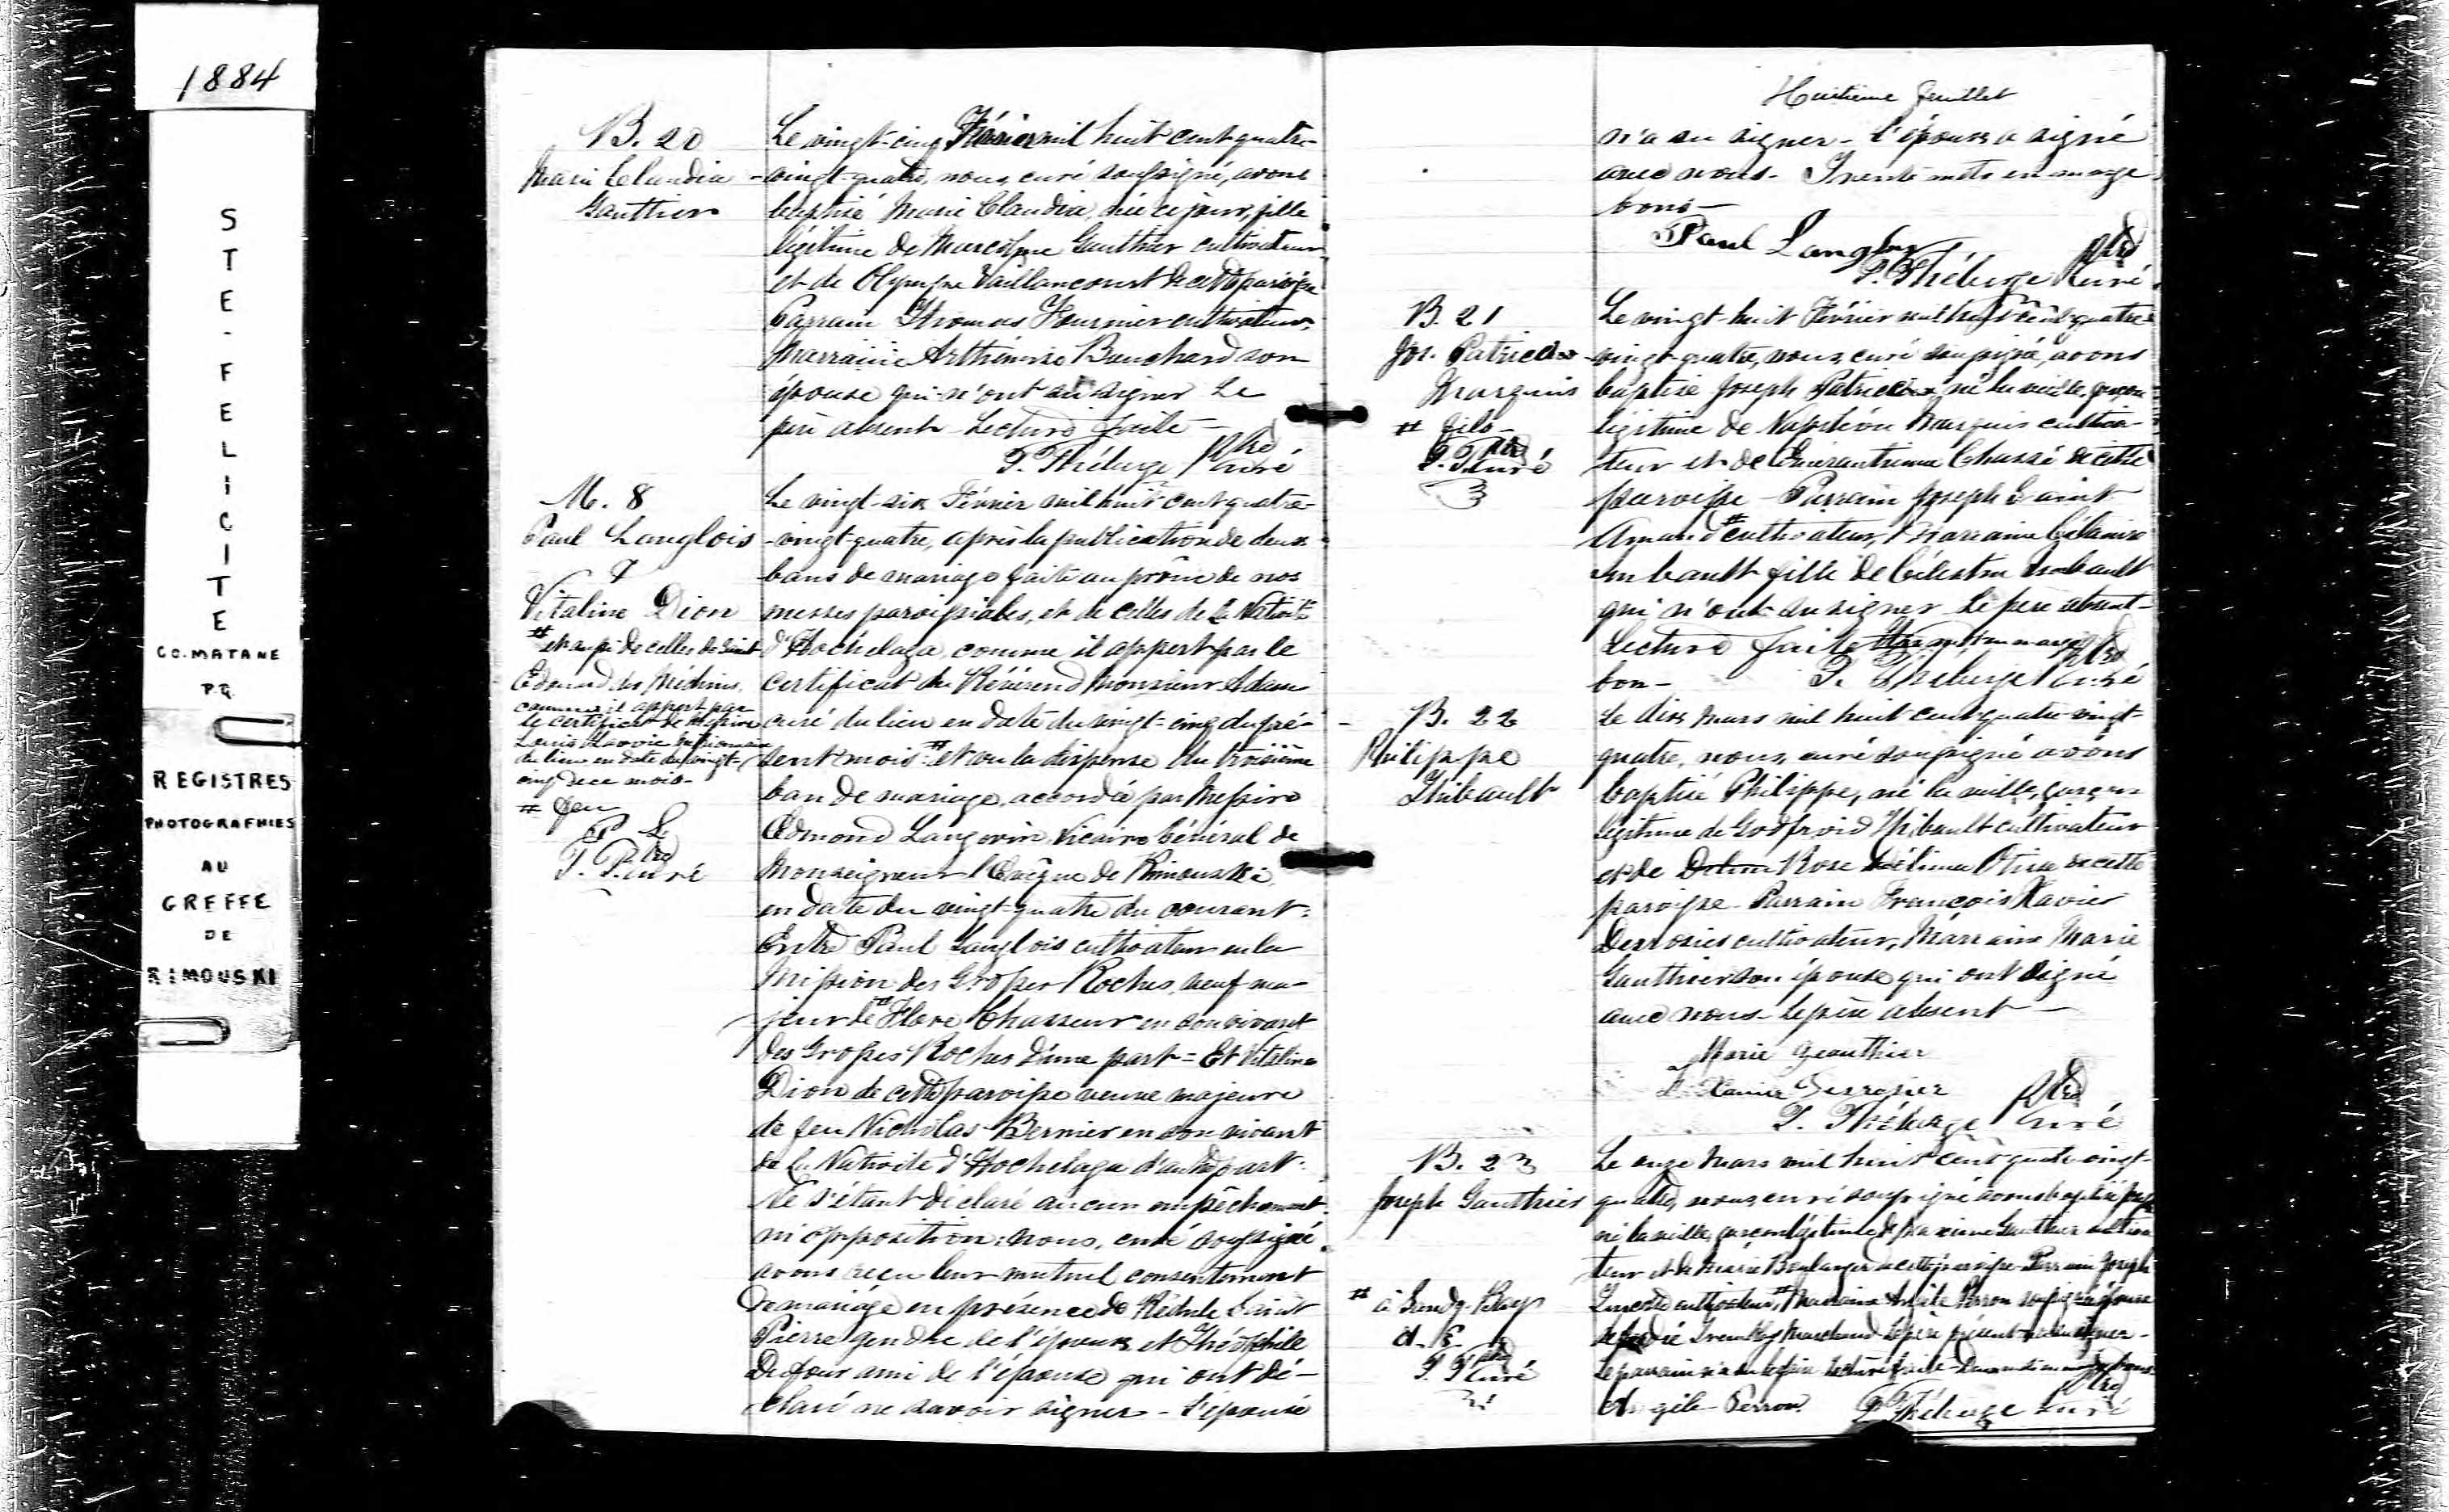 1884
STE-FELICITE
CO. MATANE
P.Q.
REGISTRES
PHOTOGRAPHIES
AU
GREFFE
DE
RIMOUSKI
B. 20
Marie Claudia
Gauthier
Le vingt-cinq Février mil huit cent quatre-
vingt-quatre, nous, curé soussigné, avons
baptisé Marie Claudia, née ce jour, fille
légitime de Gauthier cultivateur
et de Olympe Vaillancourt de cette paroisse
Parrain Thomas Fournier cultivateur,
Marraine Arthémise Bouchard son
épouse qui n'ont su signer Le
père absent Lecture faite -
P. Théberge Ptre Curé
M. 8
Paul Langlois
&
Vitaline Dion
# et aussi de celles de Saint
Edouard des Méchins,
comme il appert par
le certificat de Messire
Louis
du lieu en date du vingt-
cinq de ce mois-
# feu
P. L.
P. T. Ptre curé
Le vingt-six Février mil huit cent quatre-
-vingt-quatre, après la publication de deux
bans de mariage faite au prône de nos
messes paroissiales, et de celles de la Nativité
d'Hochelaga comme il appert par le
certificat du Révérend Monsieur Adam
curé du lieu en date du vingt-cinq du pré-
sent mois # et vu la dispense du troisième
ban de mariage, accordée par Messire
Edmond Langevin Vicaire Général de
Monseigneur l'Evêque de Rimouski
en date du vingt-quatre du courant:
Entre Paul Langlois cultivateur en la
Mission des Grosses Roches, veuf ma-
jeur de # Flore Chasseur en son vivant
des Grosses Roches d'une part = Et Vitaline
Dion de cette paroisse veuve majeure
de feu Nicholas Bernier en son vivant
de la Nativité d'Hochelaga d'autre part:
Ne s'étant déclaré aucun empêchement
ni opposition: nous, curé soussigné
avons reçu leur mutuel consentement
de mariage en présence de Saint
Pierre gendre de l'époux et Théophile
Dufour ami de l'épouse qui ont dé-
claré ne savoir signer - L'épouse
Huitième feuillet
n'a su signer - l'époux a signé
avec nous - Trente mots en marge
bons -
Paul Langlois
P. Théberge Ptre Curé
B. 21
Jos. Patrice
Marquis
# fils -
P. T. Ptre Curé
Le vingt-huit Février mil huit cent quatre-
vingt-quatre, nous, curé soussigné, avons
baptisé Joseph Patrice né la veille, garçon
légitime de Napoléon Marquis cultiva-
teur et de Chassé de cette
paroisse - Parrain Joseph Saint
Amand # cultivateur, Marraine Célanire
Imbault fille de Célestin Imbault
qui n'ont su signer Le père absent -
Lecture faite mot en marge
bon - P. Théberge Ptre Curé
B. 22
Philippe
Thibault
Le dix Mars mil huit cent quatre-vingt-
quatre, nous, curé soussigné avons
baptisé Philippe, né la veille, garçon
légitime de Godfroid Thibault cultivateur
et de Rose Délima de cette
paroisse - Parrain François Xavier
Desrosiers cultivateur, Marraine Marie
Gauthier son épouse qui ont signé
avec nous - le père absent -
Marie Geauthier
F. Xavier Desrosier
P. Théberge Ptre Curé
B. 23
Joseph Gauthier
# à Sandy Bay
A. P.
P. T. Ptre Curé
Le onze Mars mil huit cent quatre-vingt-
quatre, nous, curé soussigné avons baptisé Joseph
né la veille, garçon légitime de Maxime Gauthier cultiva
teur et de Marie Boulanger de cette paroisse - Parrain Joseph
cultivateur, # Marraine Perron soussignée épouse
de Tremblay Marchand Le père présent
Le parrain n'a su signer Lecture faite - en marge bons
Perron P. Théberge Ptre Curé